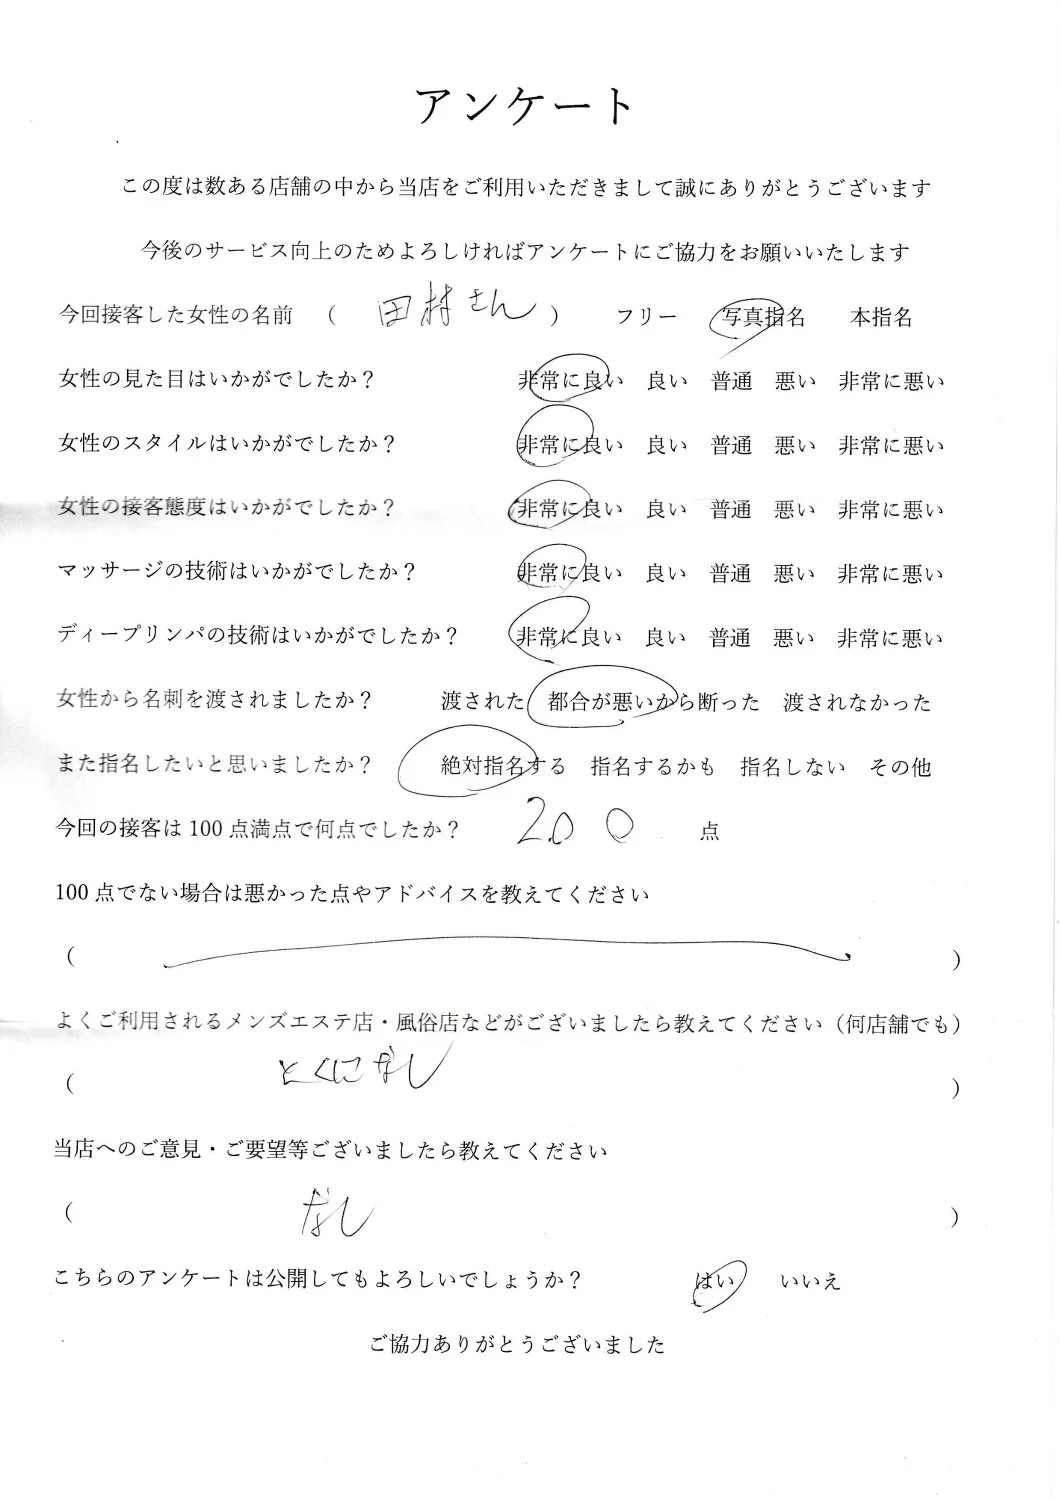 アンケート
この度は数ある店舗の中から当店をご利用いただきまして誠にありがとうございます
今後のサービス向上のためよろしければアンケートにご協力をお願いいたします
今回接客した女性の名前 ( 田村さん ) フリー 写真指名 本指名
女性の見た目はいかがでしたか？ 非常に良い 良い 普通 悪い 非常に悪い
女性のスタイルはいかがでしたか？ 非常に良い 良い 普通 悪い 非常に悪い
女性の接客態度はいかがでしたか？ 非常に良い 良い 普通 悪い 非常に悪い
マッサージの技術はいかがでしたか？ 非常に良い 良い 普通 悪い 非常に悪い
ディープリンパの技術はいかがでしたか？ 非常に良い 良い 普通 悪い 非常に悪い
女性から名刺を渡されましたか？ 渡された 都合が悪いから断った 渡されなかった
また指名したいと思いましたか？ 絶対指名する 指名するかも 指名しない その他
今回の接客は 100 点満点で何点でしたか？ 200 点
100 点でない場合は悪かった点やアドバイスを教えてください
( )
よくご利用されるメンズエステ店・風俗店などがございましたら教えてください（何店舗でも）
( とくになし )
当店へのご意見・ご要望等ございましたら教えてください
( なし )
こちらのアンケートは公開してもよろしいでしょうか？ はい いいえ
ご協力ありがとうございました